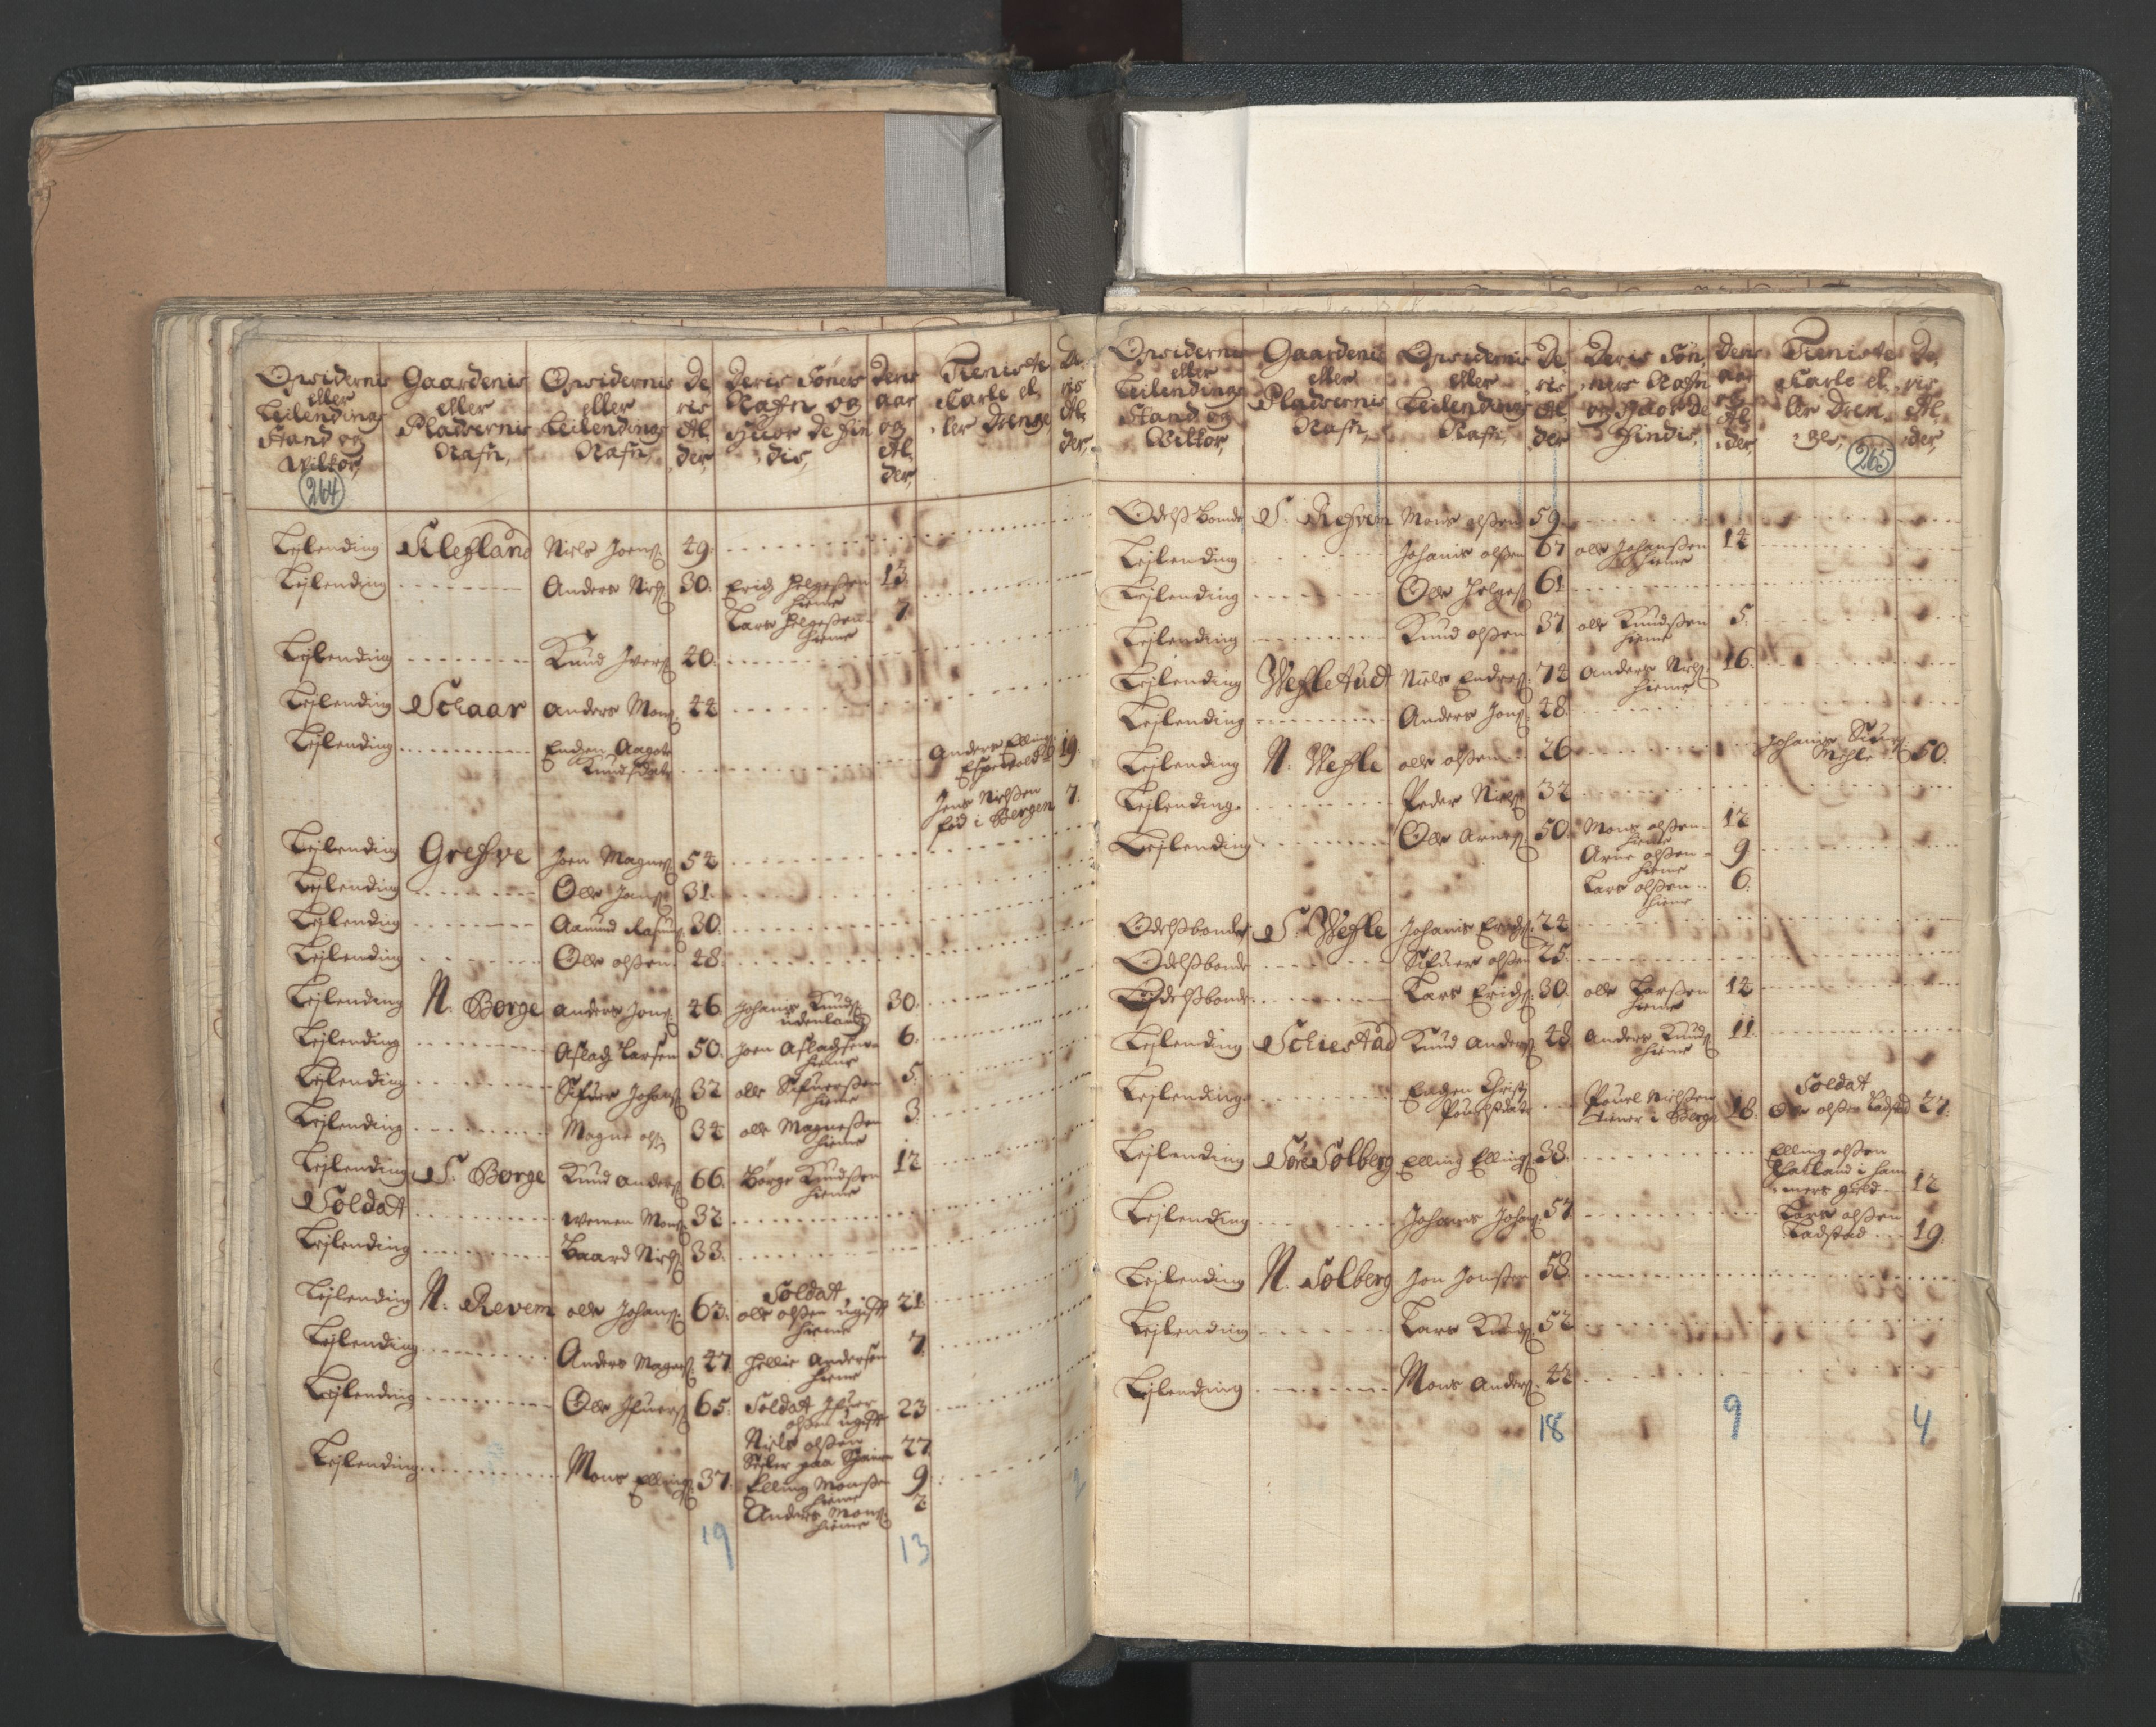 Opsidernis eller Leilendings Stand og Wilkor, Gaardenis eller Pladzernis Nafn, Opsidernis eller Leilendings Nafn, Deris Alder, Deris Sönners Nafn og Huor de findis, Deris aar og Alder, Tieniste Karle eller Drenge, Deris Alder,
264
Lejlending Klefland Niels Joens: 49.
Lejlending Anders Nils: 30. Erich Helgesen hieme 13.
Lars Helgesen hieme 7.
Lejlending Knud Ivers: 40.
Lejlending Schaar Anders Mons: 44
Lejlending Encken Aagote Knudsdatr Anders Ellings: Espevold 19.
Jens Nielsen fød i Bergen 7.
Lejlending Grefve Joen Magnes: 54
Lejlending Olle Jons: 31.
Lejlending Aamund Rasmus: 30.
Lejlending Olle olsen 48.
Lejlending N. Borge Anders Jons: 46. Johanis Knuds: udenlands 30.
Lejlending Aslach Larsen 50. Joen Aslachsen hieme 6.
Lejlending Sifuer Johans: 32 olle Sifuersen hieme 5.
Lejlending Magne ols: 34 olle Magnesen hieme 3.
Lejlending S. Borge Knud Anders: 66. Børge Knudsen hieme 12
Soldat Mons: 32
Lejlending Baard Nils: 33.
Lejlending N. Revem olle Johans: 63. Soldat, olle olsen ugift hieme 21
Lejlending Anders Magnes: 47. Hellie Andersen hieme 7.
Lejlending Olle Ifuers: 65. Soldat Ifuer olsen ugift 23
Niels olsen 27
Lejlending Mons Ellings: 37. Elling Monsen hieme 9.
Anders Mons: hieme 2
19 13 2
Opsidernis eller Leilendings Stand og Wilkor, Gaardenis eller Pladsernis Nafn, Opsidernis eller Leilendings Nafn, Deris Alder Deris Sönners Nafn og Huor De Findis, Deris aar og Alder, Tieniste Karle eller Drenge, Deris Alder,
265
Odelsbonde S. Refvem Mons olsen 59.
Lejlending Johanis olsen 67 olle Johansen hieme 14
Lejlending Olle Helges: 61.
Lejlending Knud olsen 37. olle Knudsen hieme 5.
Lejlending Wefletud Niels Endres: 74 Anders Nils: hieme 16.
Lejlending Anders Jons: 48.
Lejlending N. Wefle olle olsen 26 Johanis Sifuers: Mihle 50.
Lejlending Peder Niels: 34
Lejlending Olle Arnes: 50. Mons olsen hieme 12
Arne olsen hieme 9
Lars olsen hieme 6.
Odelsbonde S. Wefle Johanis Erichs: 24
Odelsbonde Sifuer olsen 25.
Odelsbonde Lars Erichs: 30. olle Larsen hieme 12
Lejlending Schiestad Knud Anders: 48 Anders Knuds: hieme 11.
Lejlending Encken Christi Pouelsdatr Pouel Nielsen tiener i Borge 16. Soldat Olle olsen Tadstad 27.
Lejlending Søre Solberg Elling Ellings: 38. Elling olsen i Hammers gield 12
Lejlending Johanis Johans: 57. Lars olsen Tadstad 19.
Lejlending N. Solberg Jon Jonsen 58.
Lejlending Lars Knuds: 52
Lejlending Mons Anders: 44
18 9 4